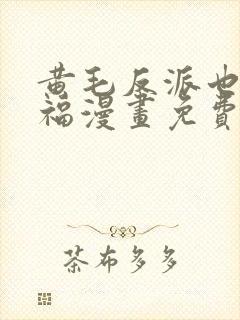 黄毛反派也
福漫畫免費
茶布多多